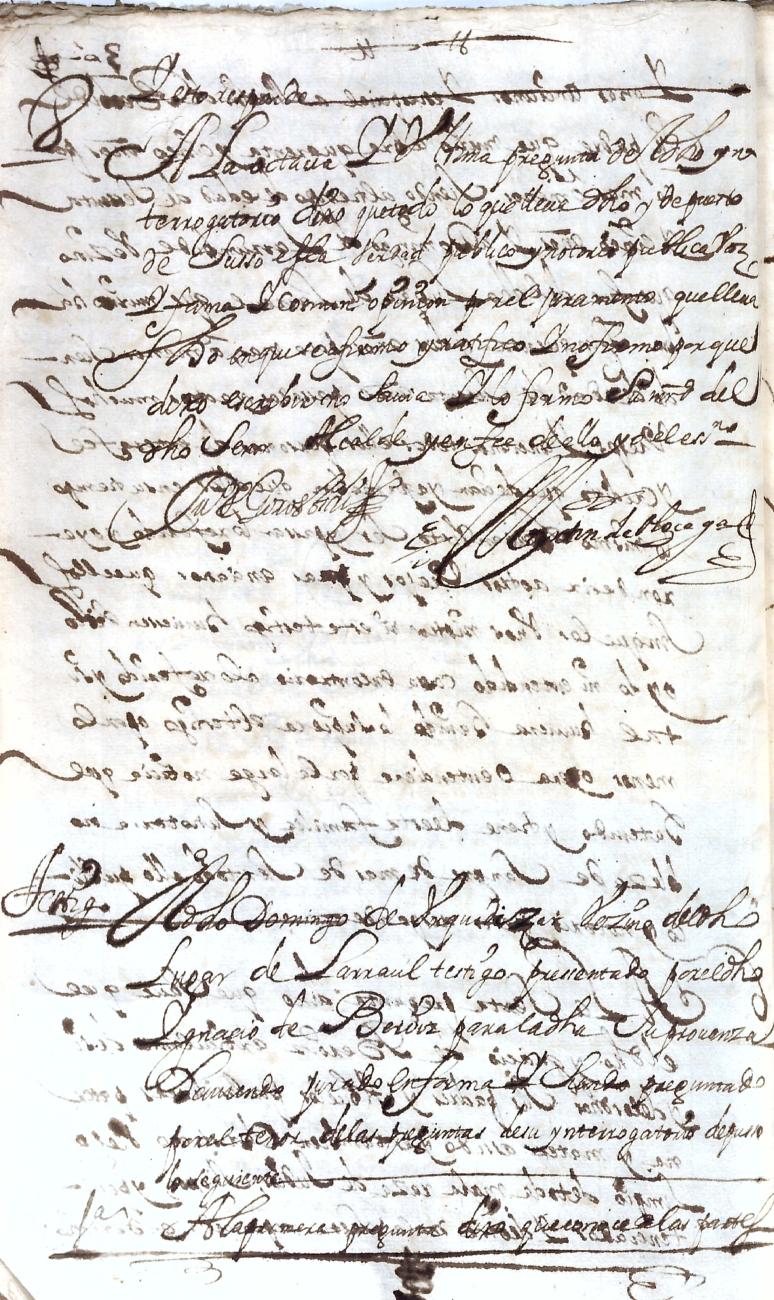 Y esto responde
8 A La octava Y Vltima pregunta del dho yn
terrogatorio dixo que todo lo que lleua dho y depuesto
de Susso es la Verdad publico y notorio publica Voz
Y fama Y Comun opinion por el juramento que lleua
fho en que se afirmo y ratifico Y no firmo por que
dixo escriuir no Sauia Y lo firmo Su mrd del
dho Senor Alcalde y en fee de ello yo el essno
Testigo El dho Domingo de Vrquidi Vezino del dho
Lugar de Larraul testigo presentado por el dho
Ygnacio de Berdiz para la dha Su prouanza
Hauiendo jurado En forma Y Siendo preguntado
por el tenor de las preguntas de su ynterrogatorio depusso
lo seguiente
1a A la primera pregunta dixo que conoce a las partes